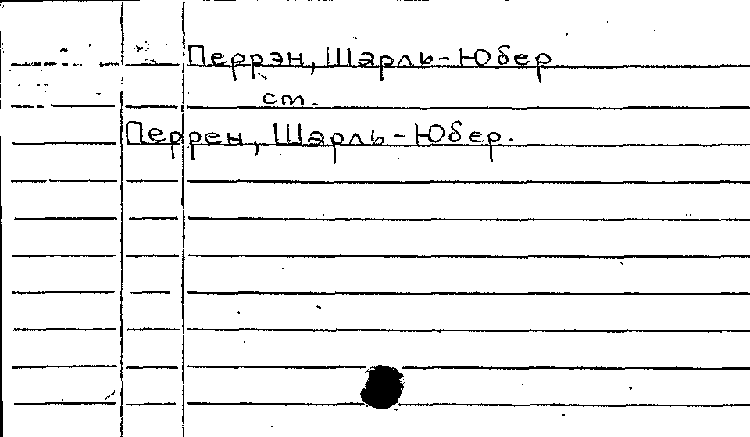 Перрэн, Шарль-Юбер
см.
Перрен, Шарль-Юбер.